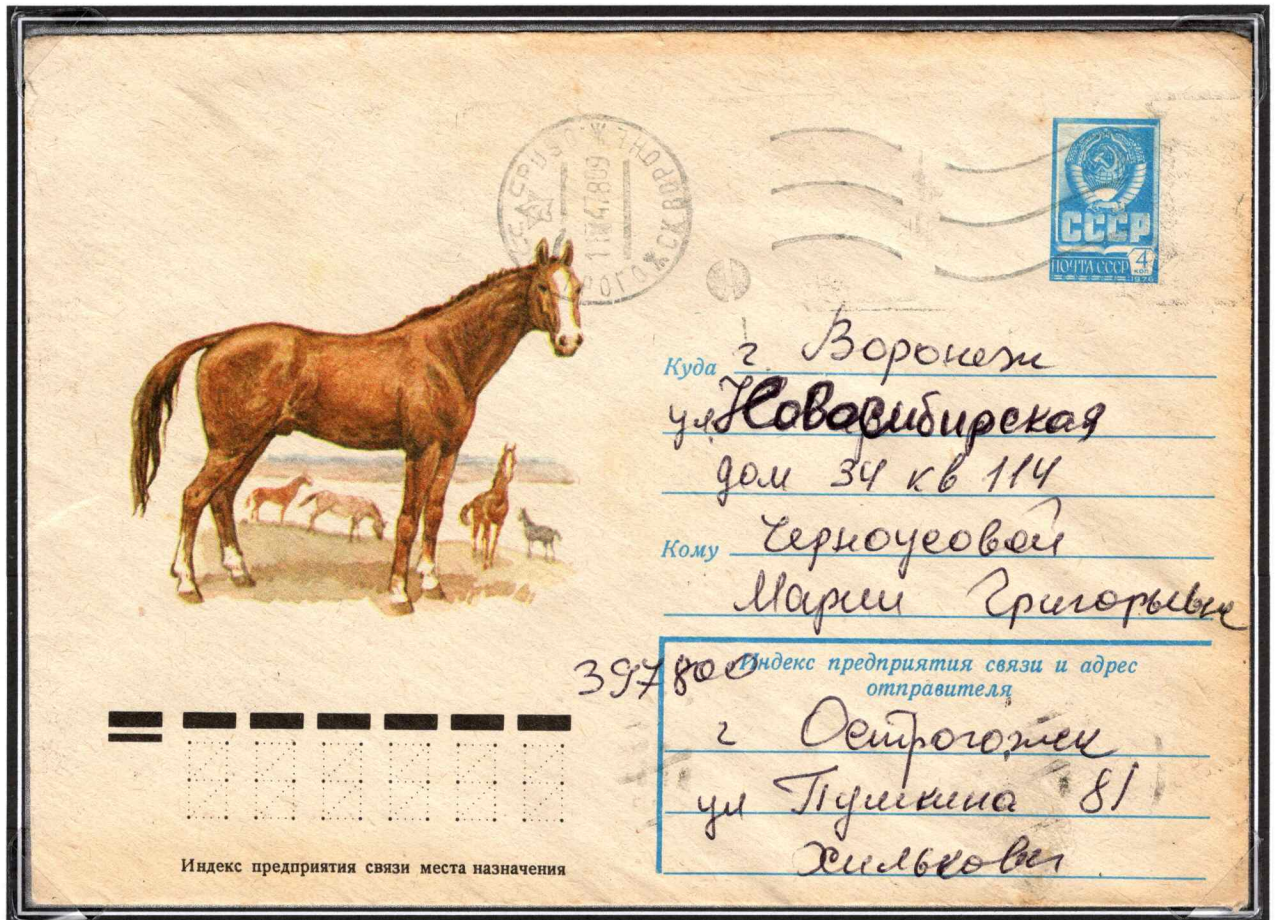 СССР
ПОЧТА СССР 4 коп
1978
Куда г Воронеж
ул Новосибирская
дом 34 кв 114
Кому Черноусовой
Марии Григорьевне
397800
Индекс предприятия связи и адрес
отправителя
г Острогожск
ул Пушкина 81
Хильковы
Индекс предприятия связи места назначения